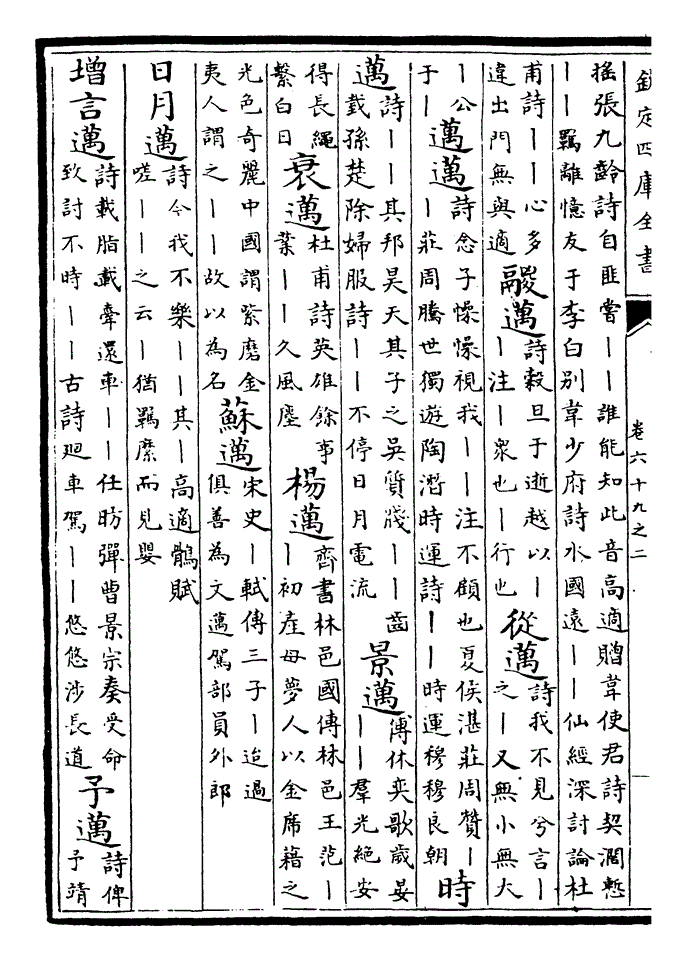 欽定四庫全書 卷六十九之二
搖張九齡詩自匪嘗丨丨誰能知此音高適贈韋使君詩契濶慙
丨丨羈離憶友于李白别韋少府詩水國遠丨丨仙經深討論杜
甫詩丨丨心多違出門無與適 鬷邁 詩穀旦于逝越以丨丨注丨衆也丨行也 從邁 詩我不見兮言丨之丨又無小無大
丨公于丨 邁邁 詩念子懆懆視我丨丨注不顧也夏侯湛莊周贊丨丨莊周騰世獨遊陶濳時運詩丨丨時運穆穆良朝 時
邁 詩丨丨其邦昊天其子之吳質牋丨丨齒載孫楚除婦服詩丨丨不停日月電流 景邁 傅休奕歌歲晏丨丨羣光絶安
得長繩繫白日 衰邁 杜甫詩英雄餘事業丨丨久風塵 楊邁 齊書林邑國傳林邑王范丨丨初產母夢人以金席藉之
光色奇麗中國謂紫磨金夷人謂之丨丨故以為名 蘇邁 宋史丨軾傳三子丨迨過俱善為文邁駕部員外郎
日月邁 詩今我不樂丨丨其丨高適鶻賦嗟丨丨之云丨猶羈縻而見嬰
增言邁 詩載脂載舝還車丨丨任昉彈曹景宗奏受命致討不時丨丨古詩廻車駕丨丨悠悠涉長道 予邁 詩俾予靖